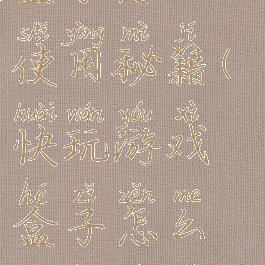 shǐ yòng mì jí
使用秘籍(
kuài wán yóu xì
快玩游戏
hé zǐ zěn me
盒子怎么